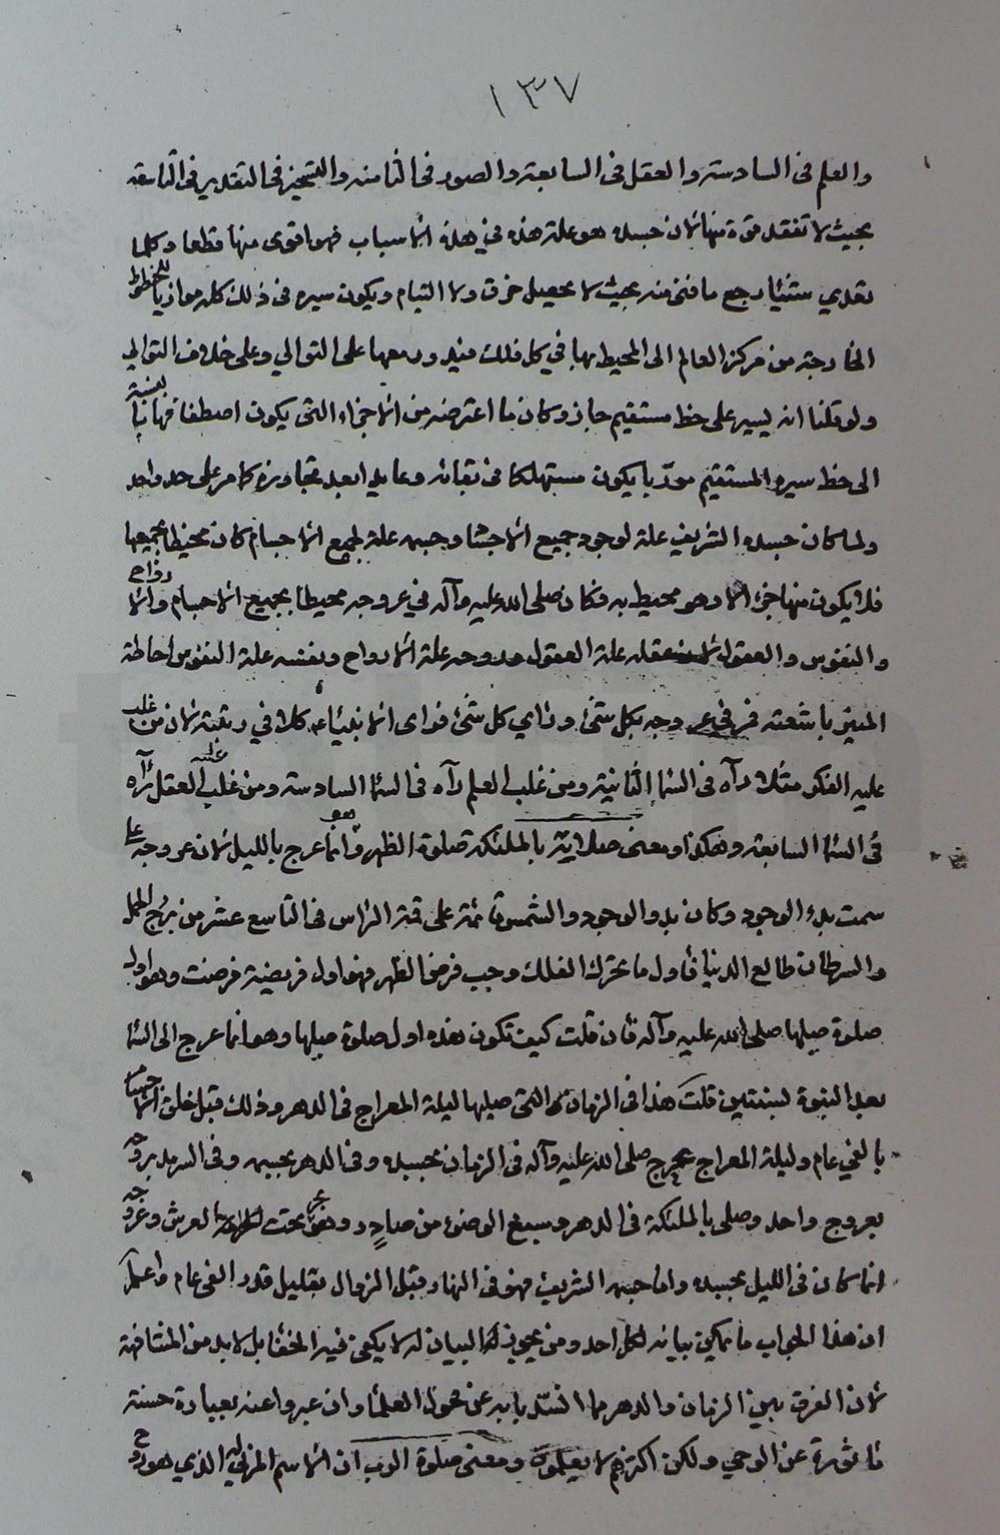 ١٣٧
والعلم في السادسة والعقل في السابعة والصور في الثامنة والتسخير في التقدير في التاسعة
بحيث لا تفقد قوة منها لان جسده هو علة هذه في هذه الاسباب فهو اقوى منها قطعا وكلما
تعدي شيئا رجع ما فتق منه بحيث لا يحصل خرق ولا التيام ويكون سيره في ذلك كله موازيا للخطوط
الخارجة من مركز العالم الى المحيط بها في كل فلك فيدور معها على التوالي وعلى خلاف التوالي
ولو قلنا انه يسير على خط مستقيم جاز وكان ما اعترضه من الاجزاء التي يكون اصطفافها نسبة
الى خط سيره المستقيم موربا يكون مستهلكا في بقائه وعايدا بعد تجاوزه كما مر على حد واحد
ولما كان جسده الشريف علة لوجود جميع الاجساد وجسمه علة لجميع الاجسام كان محيطا بجميعها
فلا يكون منها جزء الا وهو محيط به فكان صلى الله عليه وآله في عروجه محيطا بجميع الاجسام والارواح
والنفوس والعقول لان عقله علة العقول وروحه علة الارواح ونفسه علة النفوس احاطة
المنير باشعته فمر في عروجه بكل شئ وراي كل شئ فراى الانبياء كلا في رتبته لان من غلب
عليه الفكر مثلا رآه في السماء الثانية ومن غلب العلم رآه في السماء السادسة ومن غلب عليه العقل رآه
في السماء السابعة وهكذا ومعنى صلاته بالملئكة صلوة الظهر وهو انما عرج بالليل لان عروجه على
سمت بدء الوجود وكان بدو الوجود والشمس قائمة على قمة الراس في التاسع عشر من برج الحمل
والسرطان طالع الدنيا فاول ما تحرك الفلك وجب فرض الظهر فهو اول فريضة فرضت وهو اول
صلوة صلاها صلى الله عليه وآله فان قلت كيف تكون هذه اول صلوة صليها وهو انما عرج الى السماء
بعد النبوة لسنتين قلت هذا في الزمان والتي صليها ليلة المعراج في الدهر وذلك قبل خلق الاجسام
بالفي عام وليلة المعراج عرج صلى الله عليه وآله في الزمان بجسده وفي الدهر بجسمه وفي السرمد بروحه
بعروج واحد وصلى بالملئكة في الدهر وسبغ الوضوء من صاد وهو بحر تحت العرش وعروجه
انما كان في الليل بجسده واما جسمه الشريف فهو في النهار قبل الزوال بقليل قدر الفى عام واعلم
ان هذا الجواب ما يمكن بيانه لكل احد ومن يجوز له البيان له لا يكفى فيه الخط بل لابد من المشافهة
لان الفرق بين الزمان والدهر مما انسد بابه عن فحول العلماء وان عبروا عنه بعبارة حسنة
ماثورة عن الوحي ولكن اكثرهم لا يعلمون ومعنى صلوة الرب ان الاسم المربي له الذي هو روح